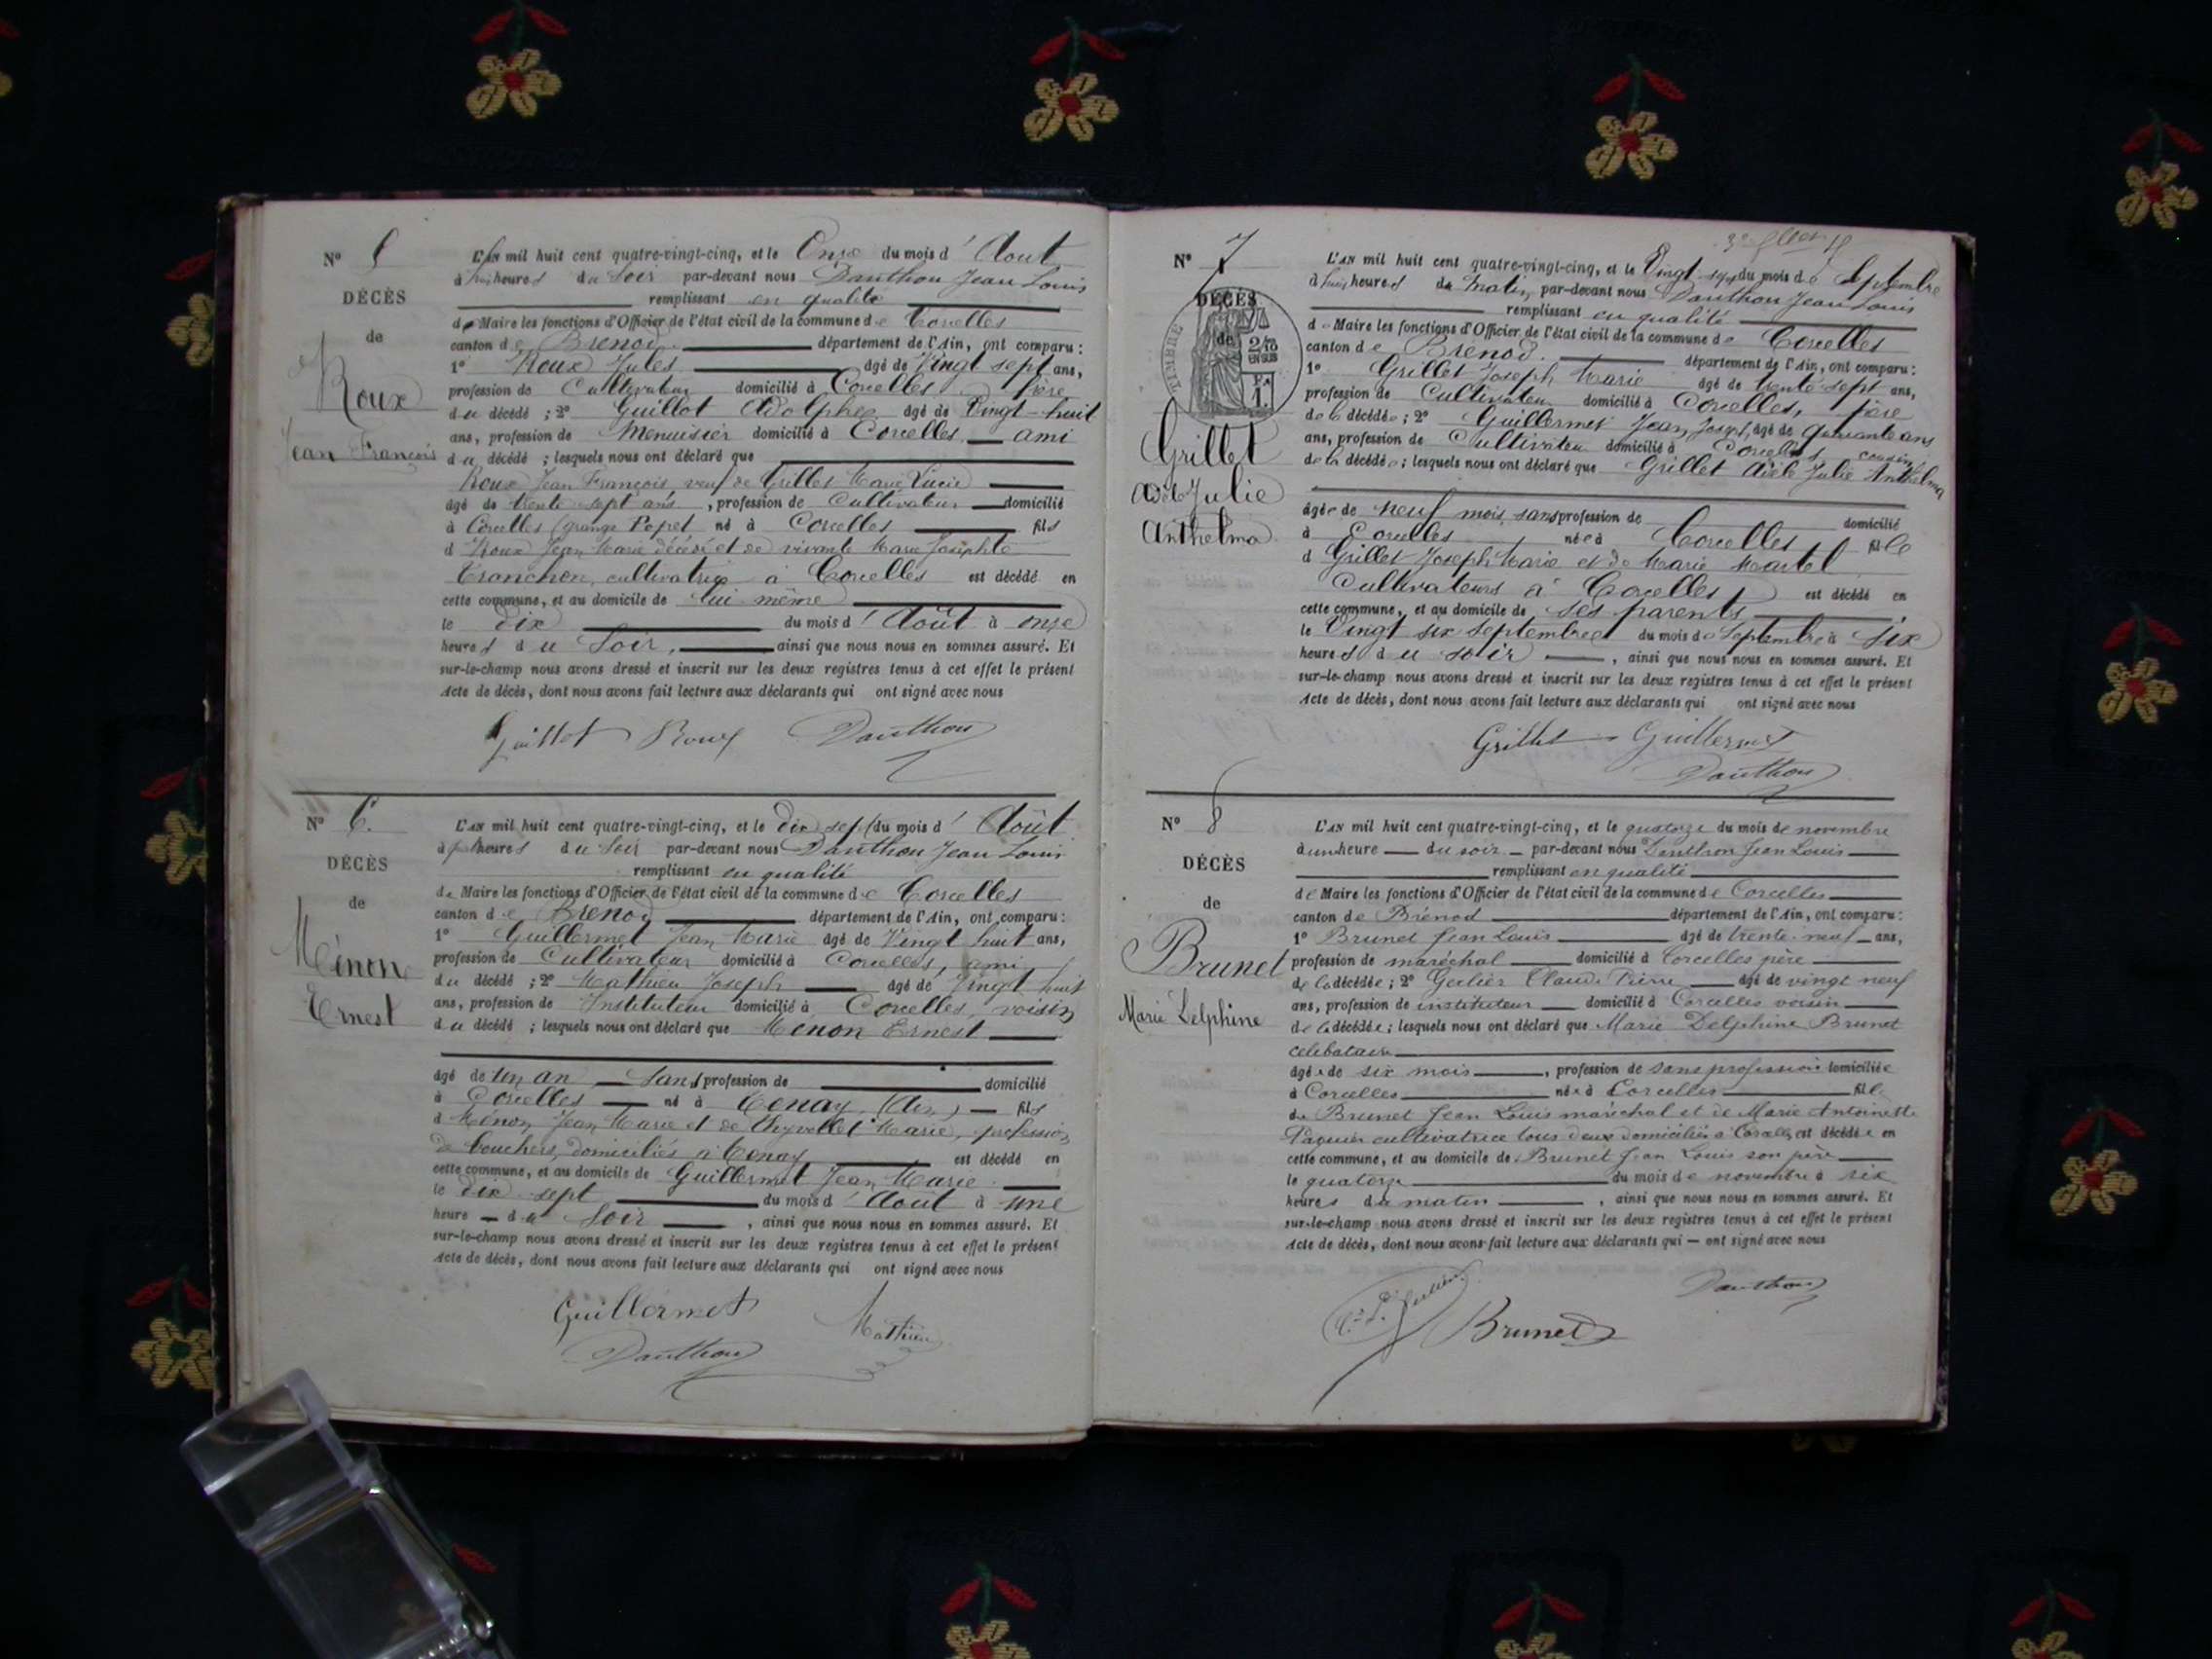 N° 5
DÉCÈS
de
Roux
Jean François
L'An mil huit cent quatre-vingt-cinq, et le Onze du mois d'Aout
à heures du Soir par-devant nous Dauthon Jean Louis
remplissant en qualité
de Maire les fonctions d'Officier de l'état civil de la commune de Corcelles
canton de Brenod département de l'Ain, ont comparu :
1° Roux Jules âgé de Vingt sept ans,
profession de Cultivateur domicilié à Corcelles frère
du décédé ; 2° Guillot Adolphe âgé de Vingt-huit
ans, profession de Menuisier domicilié à Corcelles ami
du décédé ; lesquels nous ont déclaré que
Roux Jean François veuf de Grillet Marie Lucie
âgé de trente sept ans, profession de Cultivateur domicilié
à Corcelles (grange Pepet né à Corcelles fils
d Roux Jean Marie décédé et de vivante Marie Josephte
Tranchon, cultivatrice à Corcelles est décédé en
cette commune, et au domicile de lui-même
le dix du mois d'Août à onze
heures du Soir, ainsi que nous nous en sommes assuré. Et
sur-le-champ nous avons dressé et inscrit sur les deux registres tenus à cet effet le présent
Acte de décès, dont nous avons fait lecture aux déclarants qui ont signé avec nous
Guillot Roux Dauthon
N° 6.
DÉCÈS
de
Ménon
Ernest
L'An mil huit cent quatre-vingt-cinq, et le dix sept du mois d'Août
à heures du Soir par-devant nous Dauthon Jean Louis
remplissant en qualité
de Maire les fonctions d'Officier de l'état civil de la commune de Corcelles
canton de Brenod département de l'Ain, ont comparu :
1° Guillermet Jean Marie âgé de Vingt huit ans,
profession de Cultivateur domicilié à Corcelles, ami
du décédé ; 2° Mathieu Joseph âgé de Vingt huit
ans, profession de Instituteur domicilié à Corcelles, voisin
du décédé ; lesquels nous ont déclaré que Ménon Ernest
âgé de un an sans profession de domicilié
à Corcelles né à Tenay (Ain) fils
d Ménon Jean Marie et de Marie, profession
de bouchers, domiciliés à Tenay est décédé en
cette commune, et au domicile de Guillermet Jean Marie
le dix-sept du mois d'Août à une
heure du Soir, ainsi que nous nous en sommes assuré. Et
sur-le-champ nous avons dressé et inscrit sur les deux registres tenus à cet effet le présent
Acte de décès, dont nous avons fait lecture aux déclarants qui ont signé avec nous
Guillermet Mathieu
Dauthon
N° 7
DÉCÈS
de
TIMBRE
Grillet
Adèle Julie
Anthelma
L'An mil huit cent quatre-vingt-cinq, et le Vingt sept du mois de Septembre
à heures du Matin par-devant nous Dauthon Jean Louis
remplissant en qualité
de Maire les fonctions d'Officier de l'état civil de la commune de Corcelles
canton de Brénod. département de l'Ain, ont comparu :
1° Grillet Joseph Marie âgé de trente sept ans,
profession de Cultivateur domicilié à Corcelles, père
de la décédée ; 2° Guillermet Jean Joseph, âgé de quarante ans
ans, profession de Cultivateur domicilié à Corcelles, cousin
de la décédée ; lesquels nous ont déclaré que Grillet Adèle Julie Anthelma
âgée de neuf mois, sans profession de domicilié
à Corcelles née à Corcelles fille
d Grillet Joseph Marie et de Marie Martel
Cultivateurs à Corcelles est décédé en
cette commune, et au domicile de ses parents
le Vingt six Septembre du mois de Septembre à six
heures du soir, ainsi que nous nous en sommes assuré. Et
sur-le-champ nous avons dressé et inscrit sur les deux registres tenus à cet effet le présent
Acte de décès, dont nous avons fait lecture aux déclarants qui ont signé avec nous
Grillet Guillermet
Dauthon
N° 8
DÉCÈS
de
Brunet
Marie Delphine
L'An mil huit cent quatre-vingt-cinq, et le quatorze du mois de novembre
à une heure du soir par-devant nous Dauthon Jean Louis
remplissant en qualité
de Maire les fonctions d'Officier de l'état civil de la commune de Corcelles
canton de Brénod département de l'Ain, ont comparu :
1° Brunet Jean Louis âgé de trente-neuf ans,
profession de maréchal domicilié à Corcelles père
de la décédée ; 2° Claude Pierre âgé de vingt neuf
ans, profession de instituteur domicilié à Corcelles voisin
de la décédée ; lesquels nous ont déclaré que Marie Delphine Brunet
célibataire
âgée de six mois, profession de sans profession domiciliée
à Corcelles née à Corcelles fille
de Brunet Jean Louis maréchal et de Marie Antoinette
cultivatrice tous deux domiciliés à Corcelles, est décédée en
cette commune, et au domicile de Brunet Jean Louis son père
le quatorze du mois de novembre à six
heures du matin, ainsi que nous nous en sommes assuré. Et
sur-le-champ nous avons dressé et inscrit sur les deux registres tenus à cet effet le présent
Acte de décès, dont nous avons fait lecture aux déclarants qui — ont signé avec nous
Dauthon
Brunet